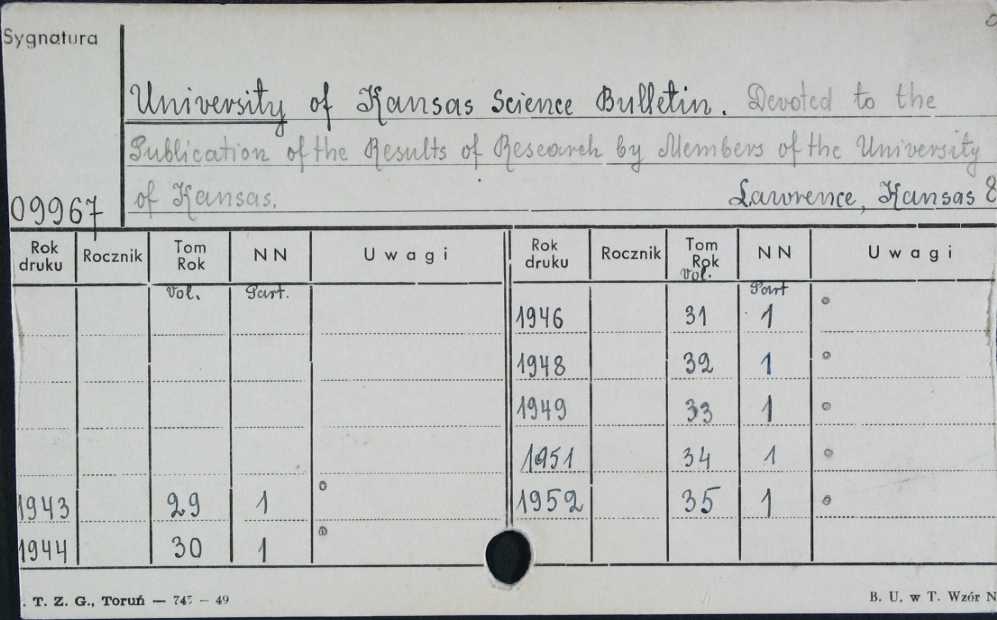 Sygnatura
University of Kansas Science Bulletin. Devoted to the
Publication of the Results of Research by Members of the University
of Kansas. Lawrence, Kansas 8
09967
Rok druku Rocznik Tom Rok NN Uwagi Rok druku Rocznik Tom Rok NN Uwagi
Vol. Part. Vol. Part
1946 31 1 °
1948 32 1 °
1949 33 1 °
1951 34 1 °
1943 29 1 ° 1952 35 1 °
1944 30 1 °
. T. Z. G., Toruń — 745 — 49 B. U. w T. Wzór N